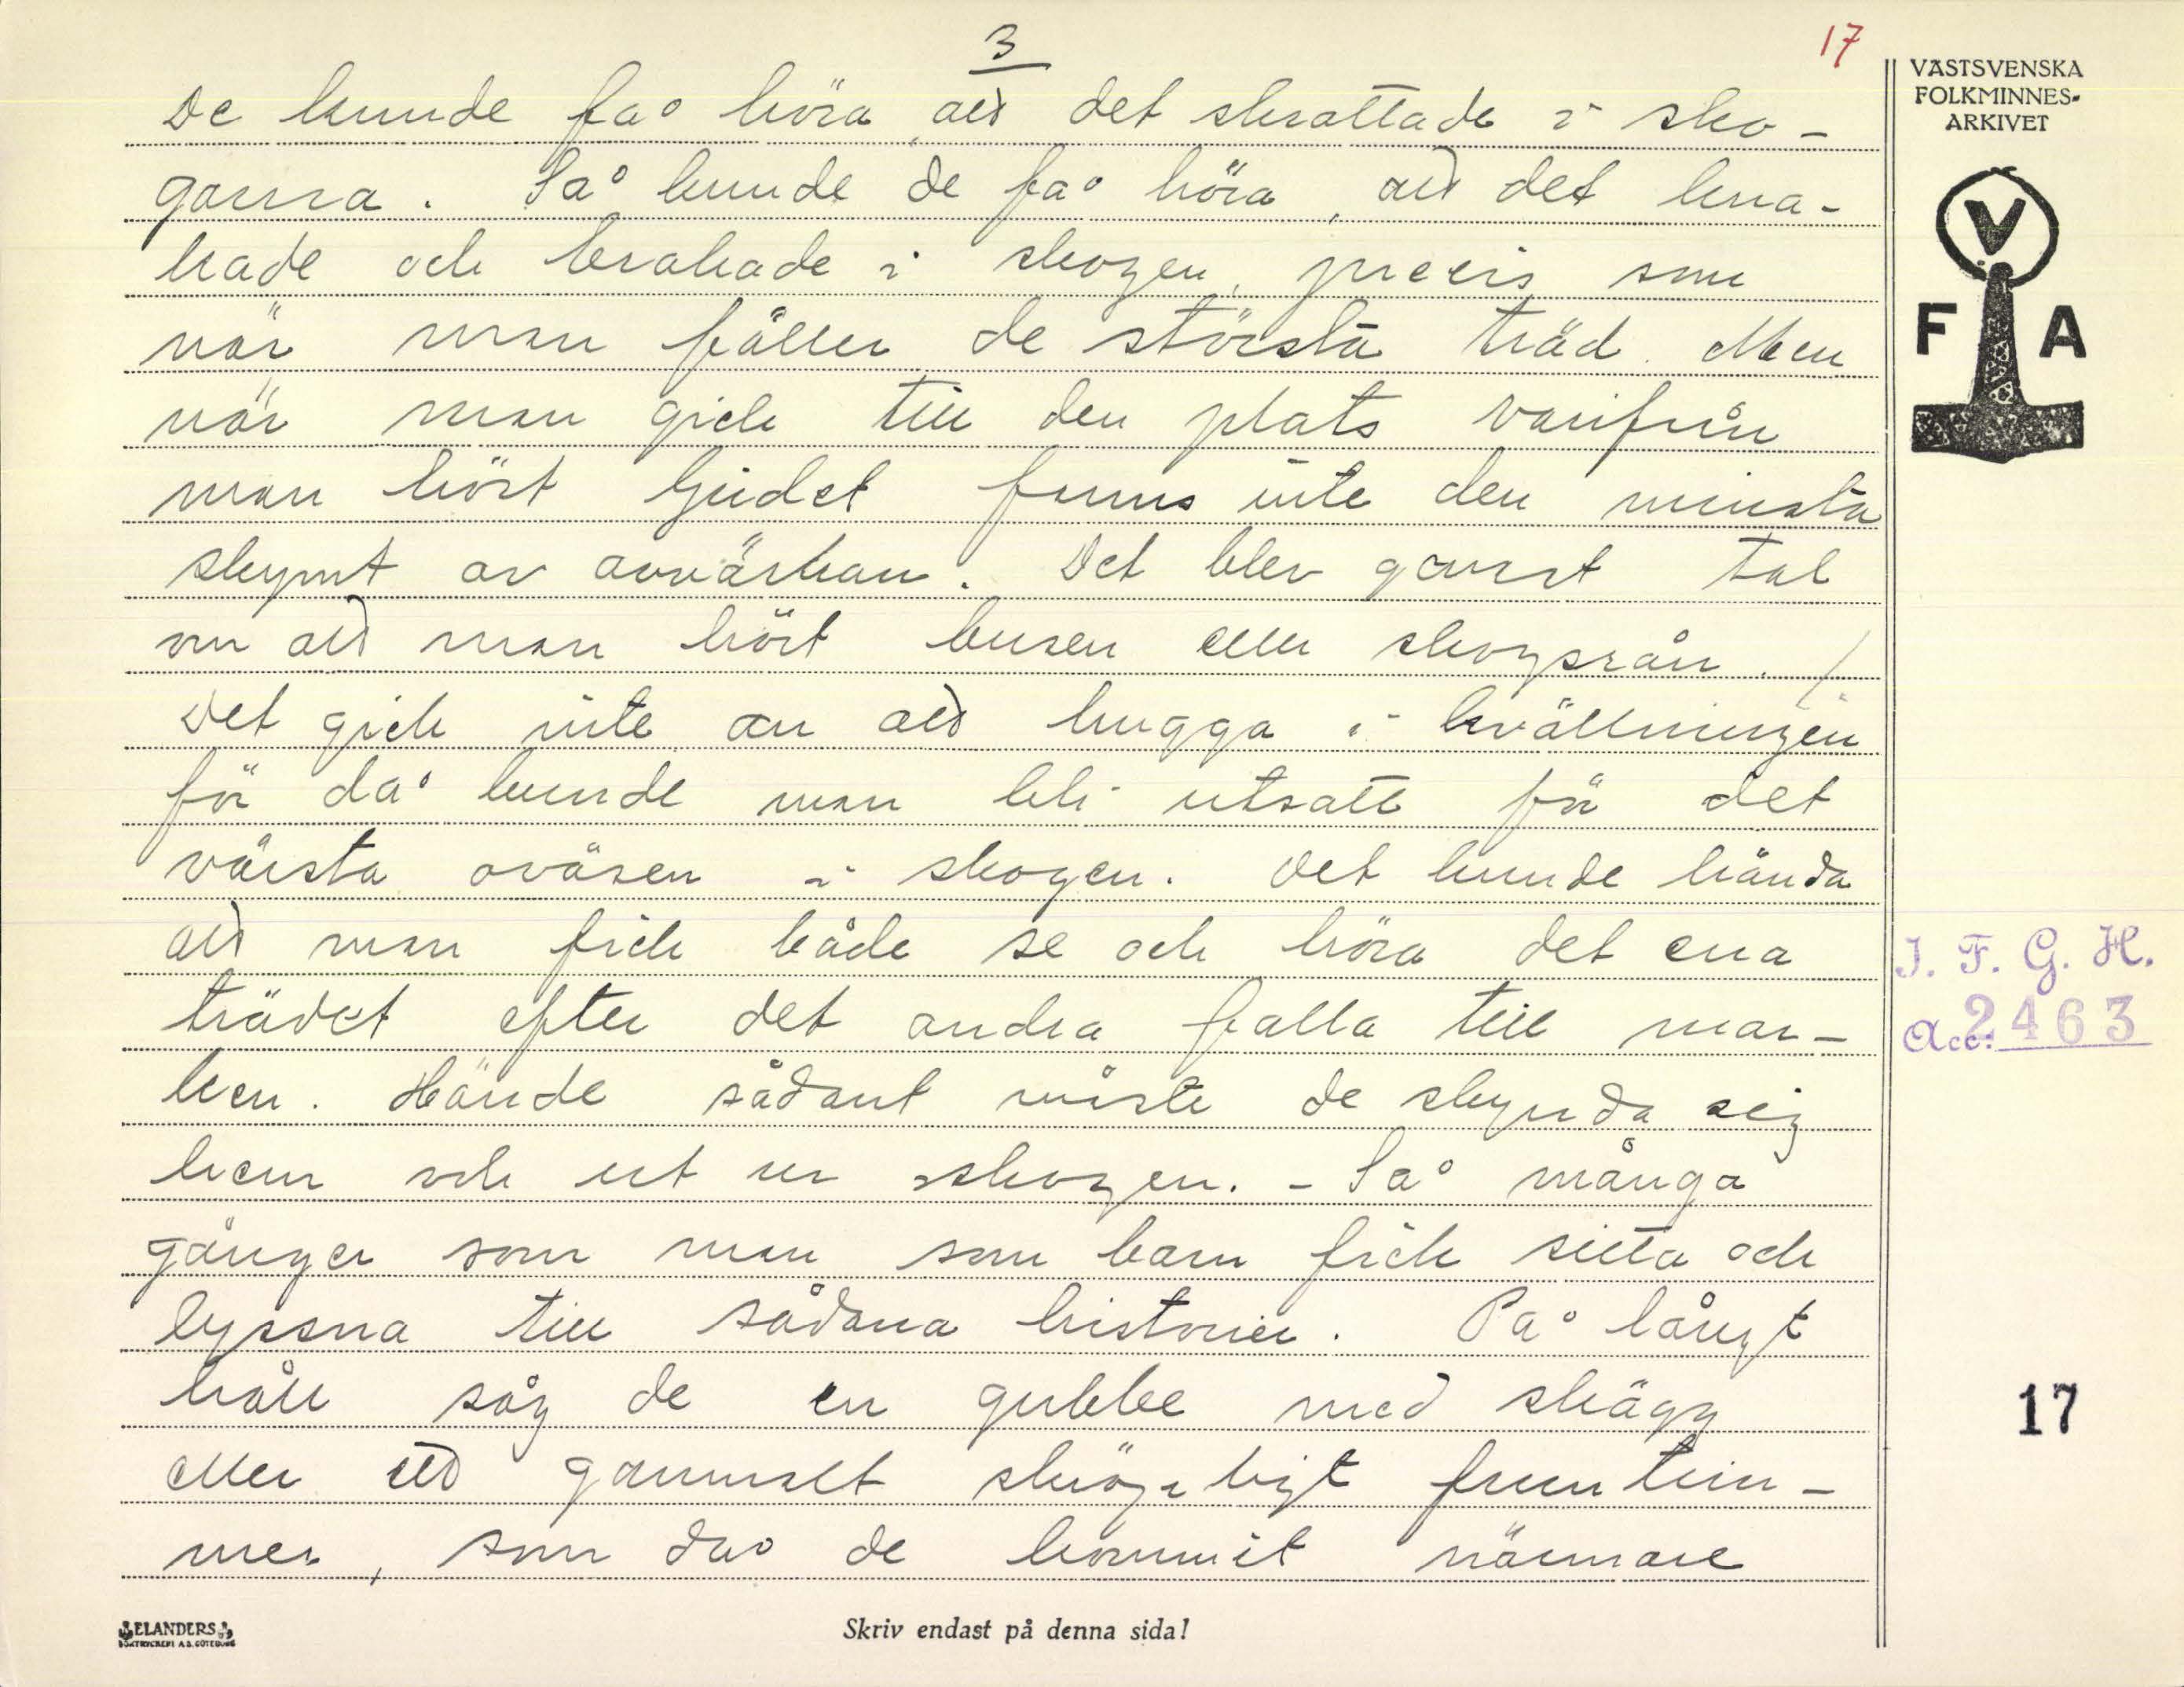 3
17
De kunde få höra att det skrattade i sko-
garna. Så kunde de få höra, att det kna-
kade och brakade i skogen, precis som
när man fäller de största träd. Men
när man gick till den plats varifrån
man hört ljudet fanns inte den minsta
skymt av åverkan. Det blev genast tal
om att man hört busen eller skogsrån. /
Det gick inte an att hugga i kvällningen
för då kunde man bli utsatt för det
värsta oväsen i skogen. Det kunde hända
att man fick både se och höra det ena
trädet efter det andra falla till mar-
ken. Hände sådant måste de skynda sig
hem och ut ur skogen. - Så många
gånger som man som barn fick sitta och
lyssna till sådana historier. På långt
håll såg de en gubbe med skägg
eller ett gammalt skröpligt fruntim-
mer, som då de kommit närmare
VÄSTSVENSKA
FOLKMINNES-
ARKIVET
V
F A
I. F. G. H.
Acc. 2463
17
ELANDERS
BOKTRYCKERI A.B. GÖTEBORG
Skriv endast på denna sida!